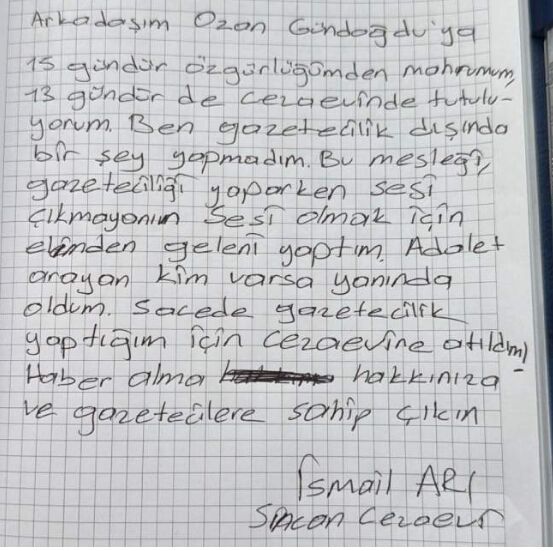 Arkadaşım Ozan Gündoğdu'ya
15 gündür özgürlüğümden mahrumum,
13 gündür de cezaevinde tutulu-
yorum. Ben gazetecilik dışında
bir şey yapmadım. Bu mesleği,
gazeteciliği yaparken sesi
çıkmayanın sesi olmak için
elinden geleni yaptım. Adalet
arayan kim varsa yanında
oldum. Sacede gazetecilik
yaptığım için cezaevine atıldım!
Haber alma hakkınıza
ve gazetecilere sahip çıkın
İsmail ARI
Sincan Cezaevi